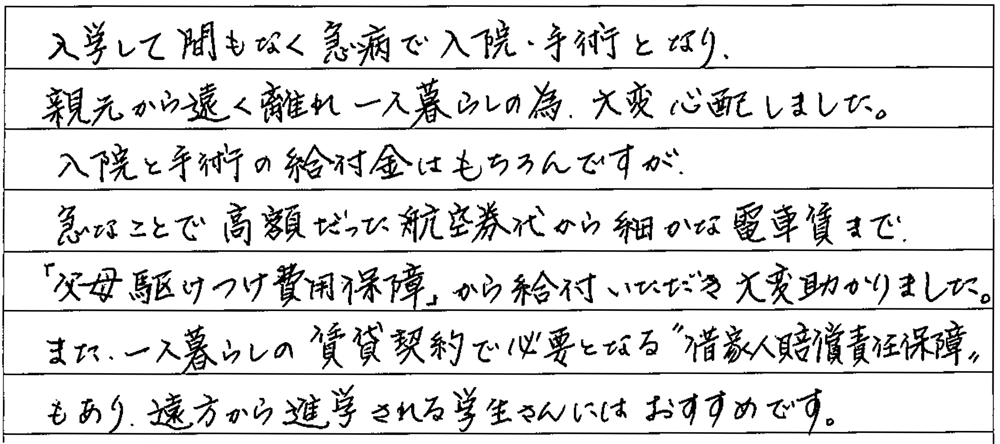 入学して間もなく急病で入院・手術となり、
親元から遠く離れ一人暮らしの為、大変心配しました。
入院と手術の給付金はもちろんですが、
急なことで高額だった航空券代から細かな電車賃まで、
「父母駆けつけ費用保障」から給付いただき大変助かりました。
また、一人暮らしの賃貸契約で必要となる〝借家人賠償責任保障〟
もあり、遠方から進学される学生さんにはおすすめです。